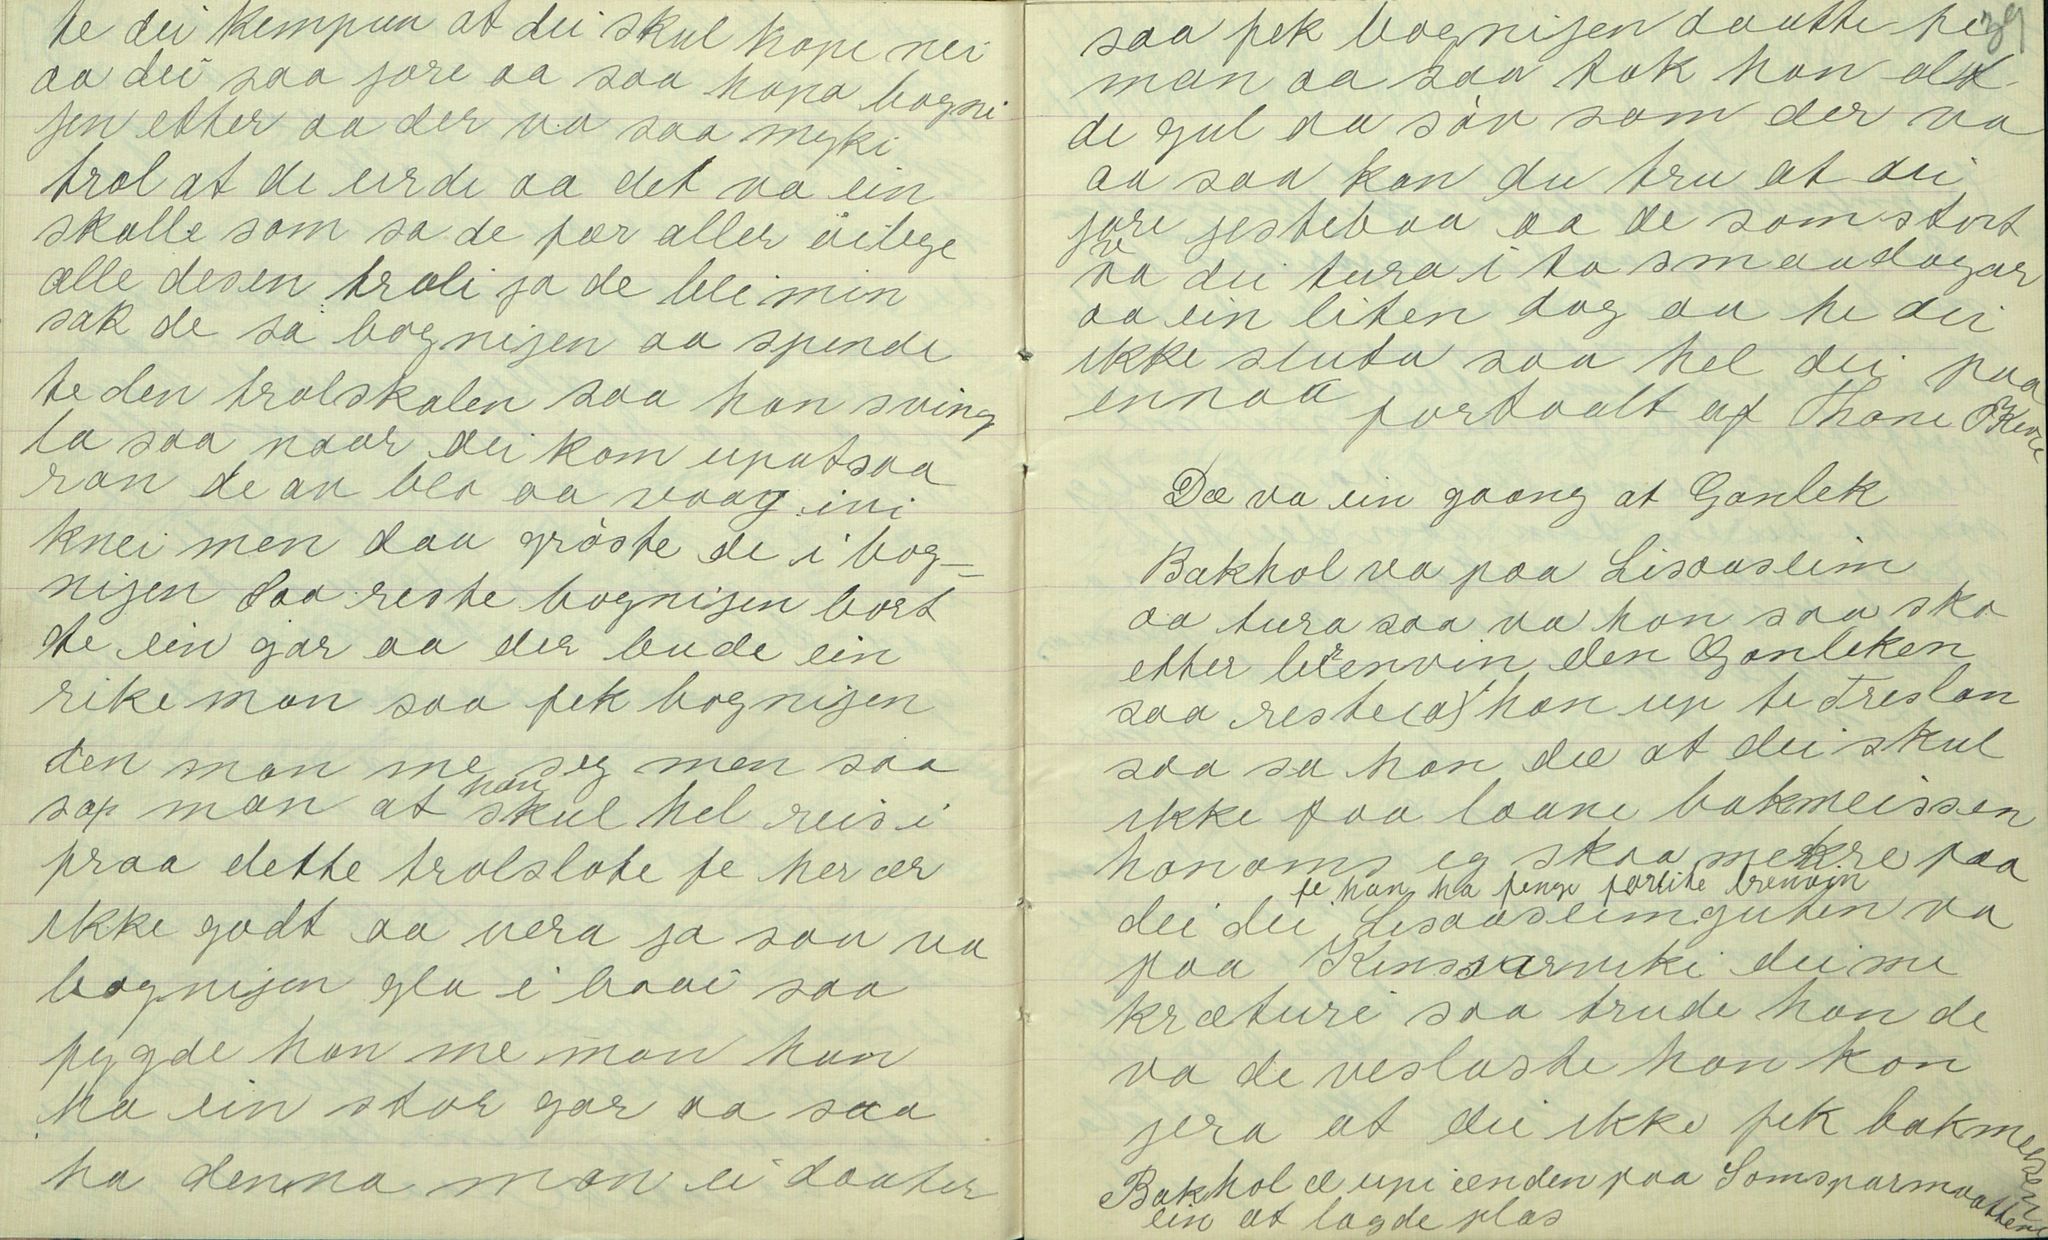 te dei kempun at dei skul hope nei
aa dei saa jore aa saa hopa bogni
jen etter aa der va saa myki
trol at de urde aa det va ein
skalle som sa de fær aller öilege
alle desen troli ja de blei min
sak de sa bognijen aa spende
te den trolskalen saa han sving
la saa naar dei kom uputsaa
ran de av blo aa vaag ini
knei men daa gröste de i bog-
nijen saa reste bognijen bort
te ein gar aa der bude ein
rike man saa fek bognijen
den man me seg men saa
sap man at han skul hel reise i
fraa dette trolslote fe her ær
ikke godt aa vera ja saa va
bognijen gla i baai saa
fygde han me man han
ha ein stor gar aa saa
ha denna man ei daater
39
saa fek bognijen daatte he
man aa saa tok han alt
de gul aa söv som der va
aa saa kan du tru at dei
jore jestebaa aa de som stort
va dei tura i to smaadagar
aa ein liten dag aa he dei
ikke sluta saa hel dei paa
ennaa fortaalt af Thone
Dæ va ein gaang at Gonlek
Bakhol va paa Lisaasleim
aa tura saa va han saa ska
etter brenvin den Gonleken
saa reste han up te Treslan
saa sa han dæ at dei skul
ikke faa laane bakmeissen
honoms eg skaa merkre paa
fe han ha fenge forlite brenvin
dei dei Lisaasleimguten va
paa Kinsvarvuki dei me
kræturi saa trude han de
va de veslaste han kon
jera at dei ikke fek bakmeissen
Bakhol æ upi ænden paa Somsparmaatten
ein at lagde plas